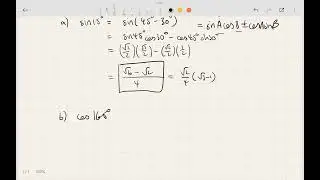 a) sin15° = sin(45° - 30°) = sinAcosB ± cosAsinB
= sin45° cos30° - cos45° sin30°
= (√2/2)(√3/2) - (√2/2)(1/2)
= √6 - √2 / 4 = √2/4 (√3-1)
b) cos 165°